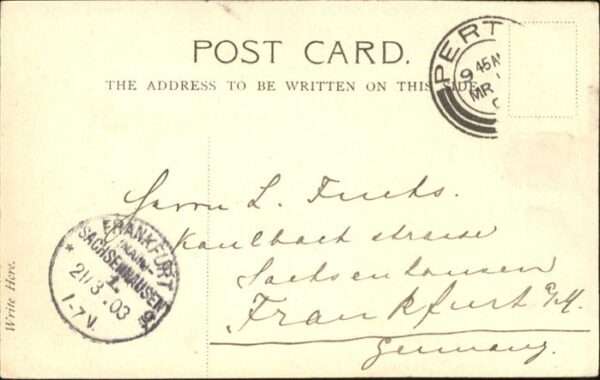 POST CARD.
THE ADDRESS TO BE WRITTEN ON THIS SIDE.
PERT
9 45 AM
MR
Herrn L. Fuchs.
Kaulbach strasse
Sachsenhausen
Frankfurt a/M.
Germany.
FRANKFURT
(MAIN)-
SACHSENHAUSEN
1.
21/3.03
1-7 V.
Write Here.